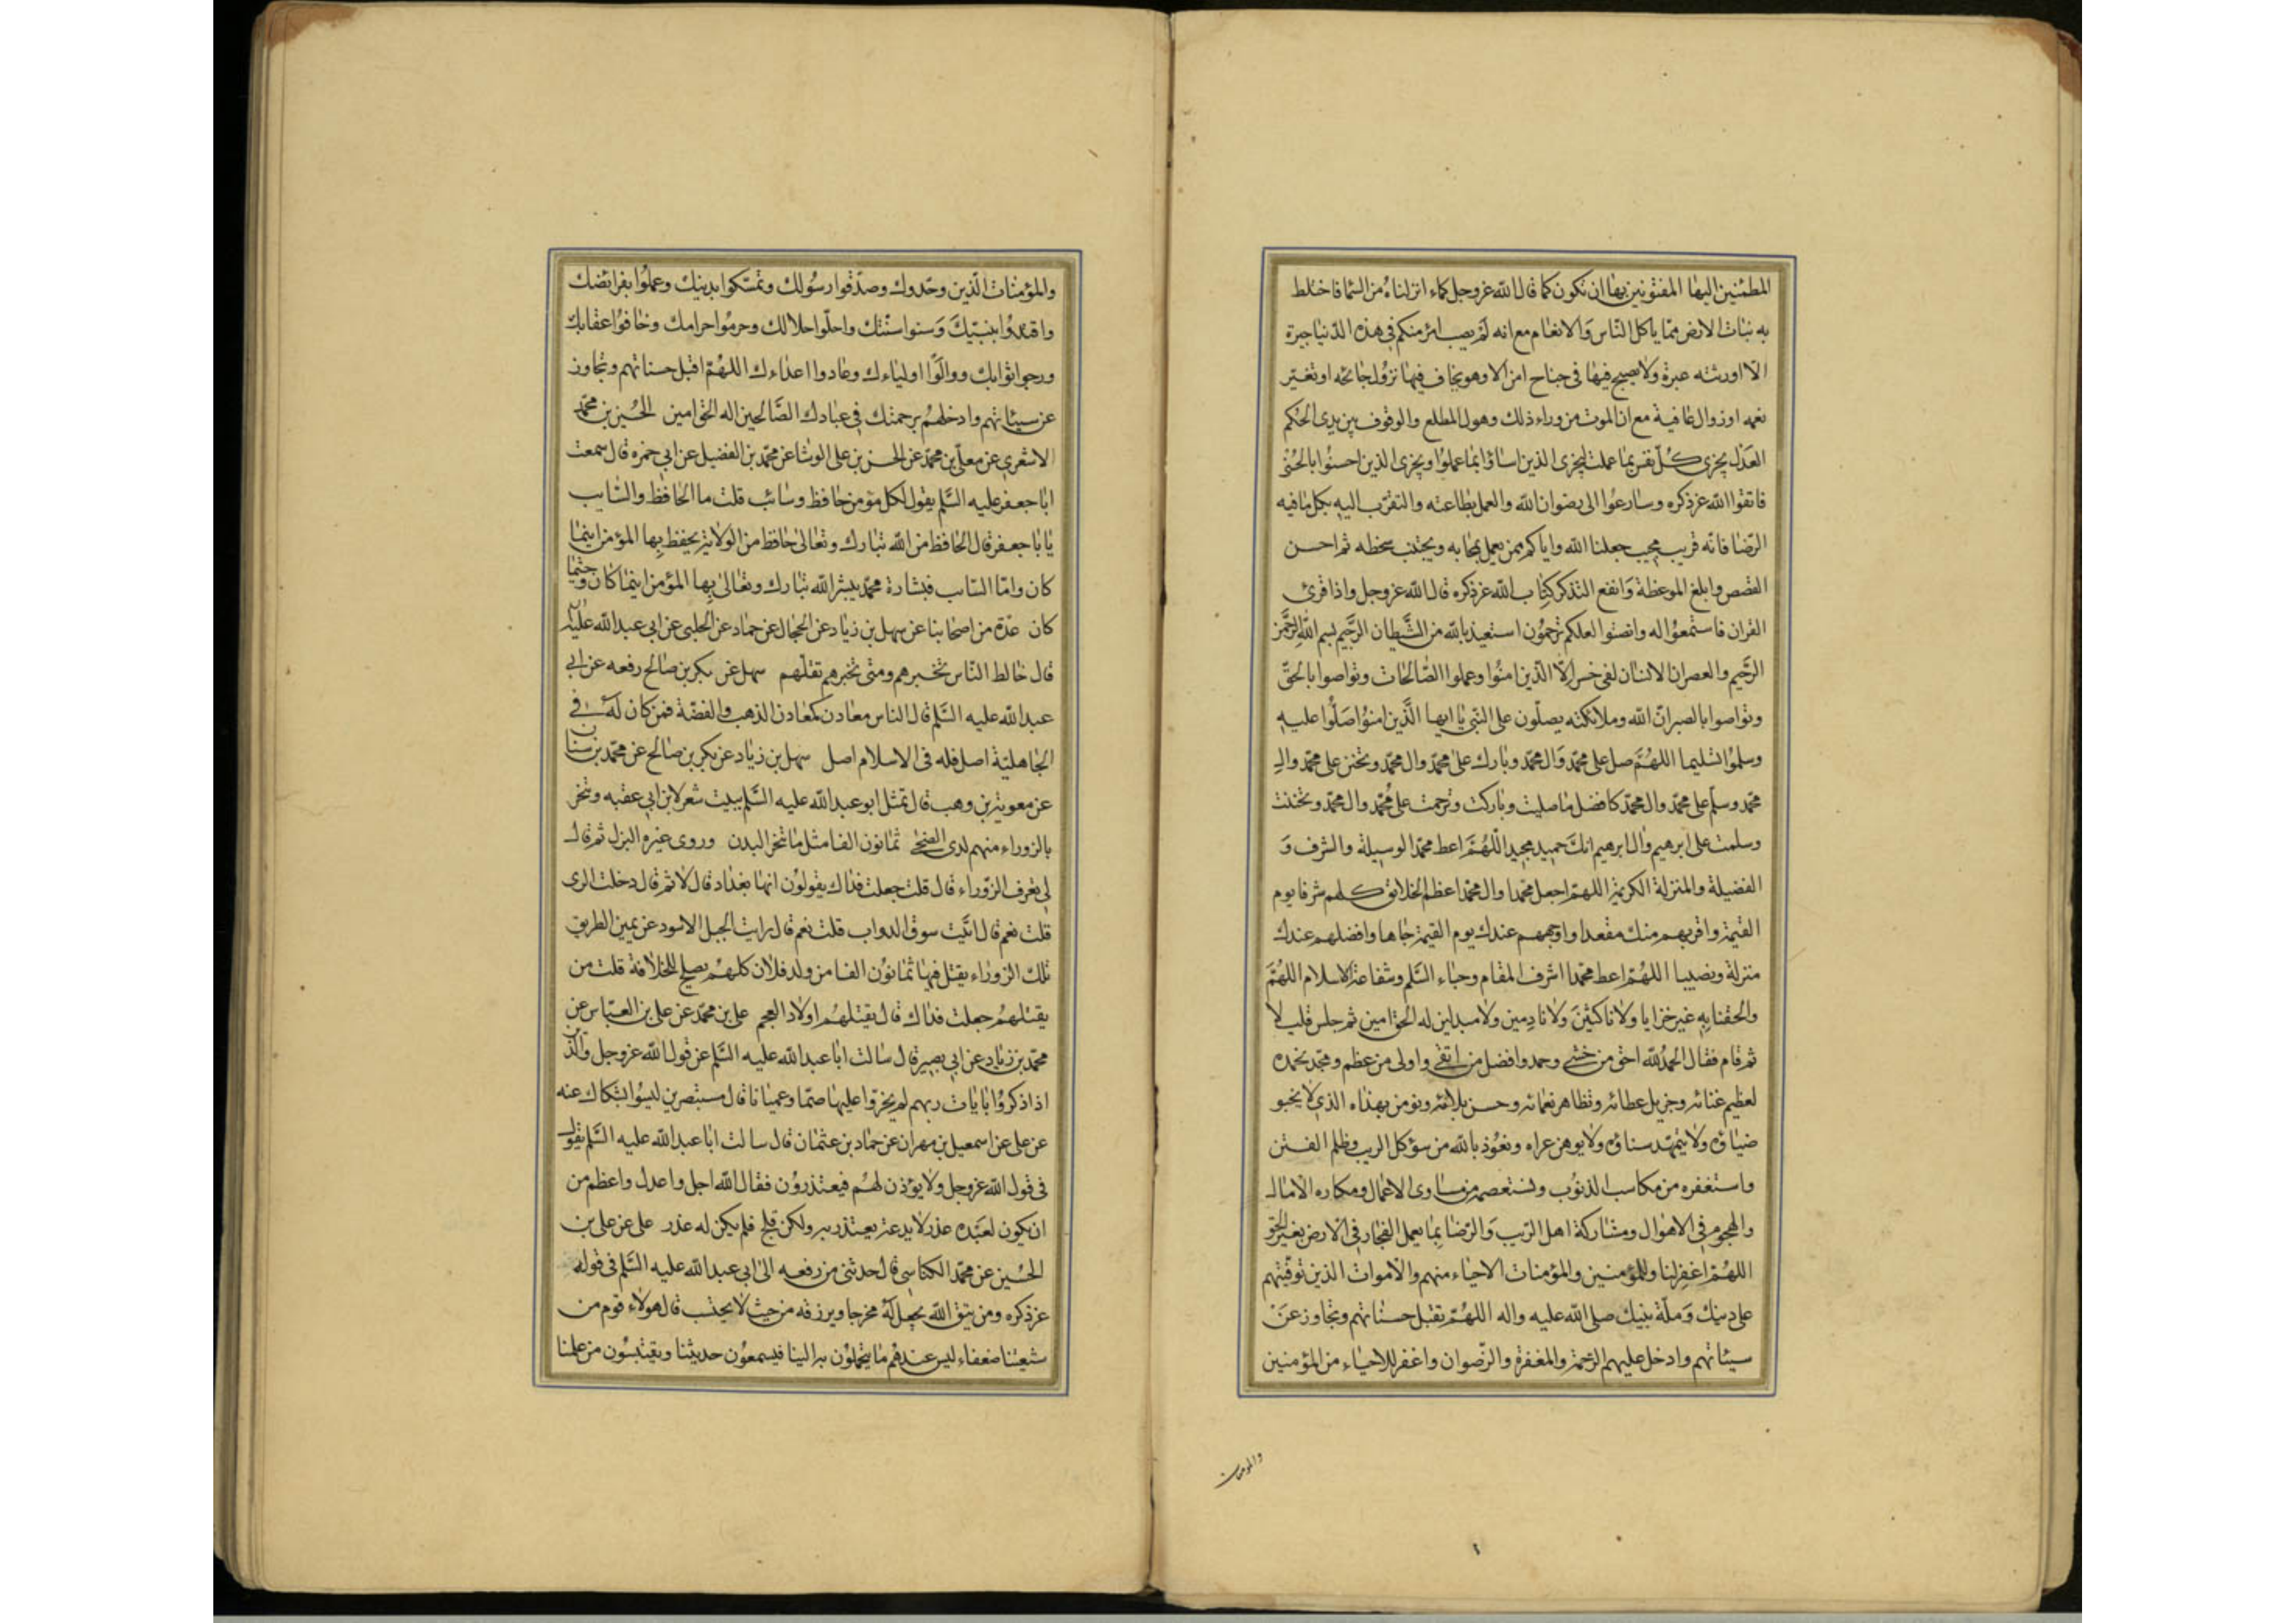 المطمئنين اليها المفتونين بها ان تكون كما قال الله عز وجل كماء انزلناه من السما فاختلط
به نبات الارض مما ياكل الناس والانعام مع انه لم يصب امرء منكم في هذه الدنيا حبرة
الا اورثته عبرة ولا يصبح فيها في جناح امن الا وهو يخاف فيها نزول جائحه او تغير
نعمه او زوال عافية مع ان الموت من وراء ذلك وهول المطلع والوقوف بين يدي الحكم
العدل يجزى كل نفس بما عملت ليجزى الذين اساؤا بما عملوا ويجزى الذين احسنوا بالحسنى
فاتقوا الله عز ذكره وسارعوا الى رضوان الله والعمل بطاعته والتقرب اليه بكل ما فيه
الرضا فانه قريب مجيب جعلنا الله واياكم ممن يعمل بمحابه ويجتنب سخطه ثم احسن
القصص وابلغ الموعظة وانفع التذكر كتاب الله عز ذكره قال الله عز وجل واذا قرئ
القران فاستمعوا له وانصتوا لعلكم ترحمون استعيذ بالله من الشيطان الرجيم بسم الله الرحمن
الرحيم والعصر ان الانسان لفي خسر الا الذين امنوا وعملوا الصالحات وتواصوا بالحق
وتواصوا بالصبر ان الله وملائكته يصلون على النبي يا ايها الذين امنوا صلوا عليه
وسلموا تسليما اللهم صل على محمد وال محمد وبارك على محمد وال محمد وتحنن على محمد وال
محمد وسلم على محمد وال محمد كافضل ما صليت وباركت وترحمت على محمد وال محمد وتحننت
وسلمت على ابرهيم وال ابرهيم انك حميد مجيد اللهم اعط محمدا الوسيلة والشرف و
الفضيلة والمنزلة الكريمة اللهم اجعل محمدا وال محمد اعظم الخلائق كلهم شرفا يوم
القيمة واقربهم منك مقعدا واوجههم عندك يوم القيمة جاها وافضلهم عندك
منزلة ونصيبا اللهم اعط محمدا اشرف المقام وحباء السلم وشفاعة الاسلام اللهم
والحقنا به غير خزايا ولا ناكثين ولا نادمين ولا مبدلين اله الحق امين ثم جلس قليلا
ثم قام فقال الحمد لله احق من خشي وحمد وافضل من اتقي واولى من عظم ومجد نحمده
لعظيم غنائه وجزيل عطائه وتظاهر نعمائه وحسن بلائه ونومن بهداه الذي لا يخبو
ضياؤه ولا يتمهد سناؤه ولا يوهن عراه ونعوذ بالله من سوء كل الريب وظلم الفتن
واستغفره من مكاسب الذنوب ونستعصمه من مساوى الاعمال ومكاره الامال
والهجوم في الاهوال ومشاركة اهل الريب والرضا بما يعمل الفجار في الارض بغير الحق
اللهم اغفر لنا وللمؤمنين والمؤمنات الاحياء منهم والاموات الذين توفيتهم
على دينك وملة نبيك صلى الله عليه واله اللهم تقبل حسناتهم وتجاوز عن
سيئاتهم وادخل عليهم الرحمة والمغفرة والرضوان واغفر للاحياء من المؤمنين
والمومنات
والمؤمنات الذين وحدوك وصدقوا رسولك وتمسكوا بدينك وعملوا بفرائضك
واقتدوا بنبيك وسنوا سنتك واحلوا حلالك وحرموا حرامك وخافوا عقابك
ورجوا ثوابك ووالوا اولياءك وعادوا اعداءك اللهم اقبل حسناتهم وتجاوز
عن سيئاتهم وادخلهم برحمتك في عبادك الصالحين اله الحق امين الحسين بن محمد
الاشعري عن معلى بن محمد عن الحسن بن على الوشا عن محمد بن الفضيل عن ابي حمزه قال سمعت
ابا جعفر عليه السلم يقول لكل مؤمن حافظ وسائب قلت ما الحافظ والسايب
يا با جعفر قال الحافظ من الله تبارك وتعالى حافظ من الولاية يحفظ بها المؤمن اينما
كان واما السائب فبشارة محمد يبشر الله تبارك وتعالى بها المؤمن اينما كان وحيثما
كان عدة من اصحابنا عن سهل بن زياد عن الحجال عن حماد عن الحلبي عن ابي عبد الله عليه
قال خالط الناس تخبرهم ومتى تخبرهم تقلهم سهل عن بكر بن صالح رفعه عن ابي
عبد الله عليه السلم قال الناس معادن كمعادن الذهب والفضة فمن كان له في
الجاهلية اصل فله في الاسلام اصل سهل بن زياد عن بكر بن صالح عن محمد بن سنان
عن معوية بن وهب قال تمثل ابو عبد الله عليه السلم ببيت شعر لابن ابي عقبه وينحر
بالزوراء منهم لدى الضحى ثمانون الفا مثل ما تنحر البدن وروى غيره البزل ثم قال
لي تعرف الزوراء قال قلت جعلت فداك يقولون انها بغداد قال لا ثم قال دخلت الرى
قلت نعم قال اتيت سوق الدواب قلت نعم قال رايت الجبل الاسود عن يمين الطريق
تلك الزوراء يقتل فيها ثمانون الفا من ولد فلان كلهم يصلح للخلافة قلت من
يقتلهم جعلت فداك قال يقتلهم اولاد العجم على بن محمد عن على بن العباس عن
محمد بن زياد عن ابي بصير قال سالت ابا عبد الله عليه السلم عن قول الله عز وجل والذين
اذا ذكروا بايات ربهم لم يخروا عليها صما وعميانا قال مستبصرين ليسوا بشكاك عنه
عن على عن اسمعيل بن مهران عن حماد بن عثمان قال سالت ابا عبد الله عليه السلم يقول
في قول الله عز وجل ولا يؤذن لهم فيعتذرون فقال الله اجل واعدل واعظم من
ان يكون لعبده عذر لا يدعه يعتذر به ولكن فلج فلم يكن له عذر على عن على بن
الحسين عن محمد الكناسي قال حدثني من رفعه الى ابي عبد الله عليه السلم في قوله
عز ذكره ومن يتق الله يجعل له مخرجا ويرزقه من حيث لا يحتسب قال هولاء قوم من
شيعتنا ضعفاء ليس عندهم ما يتحملون به الينا فيسمعون حديثنا ويقتبسون من علمنا